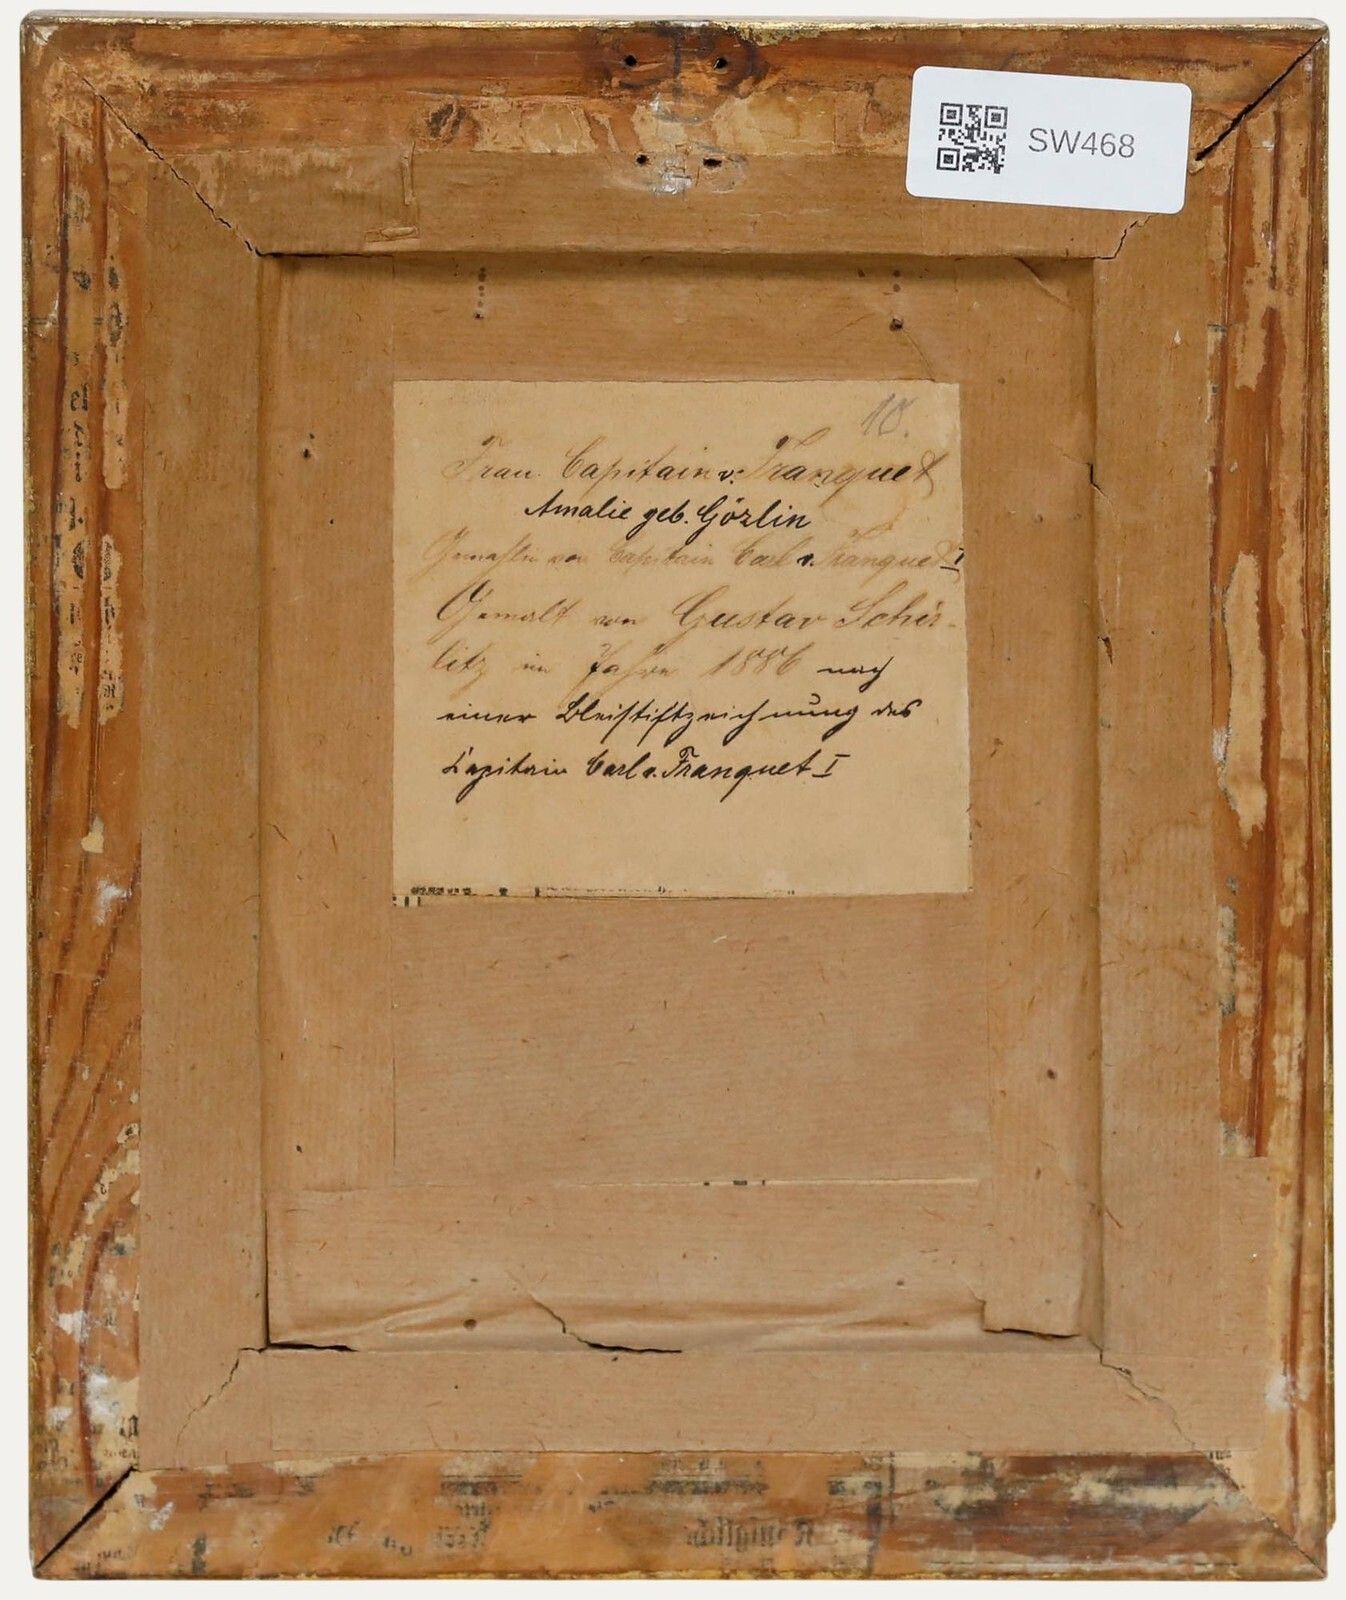 SW468
10.
Frau Capitain v. Franquet
Amalie geb. Gözlin
Gemahlin von Capitain Carl v. Franquet I
Gemalt von Gustav Schir-
litz im Jahre 1886 nach
einer Bleistiftzeichnung des
Capitain Carl v. Franquet I
Königlich